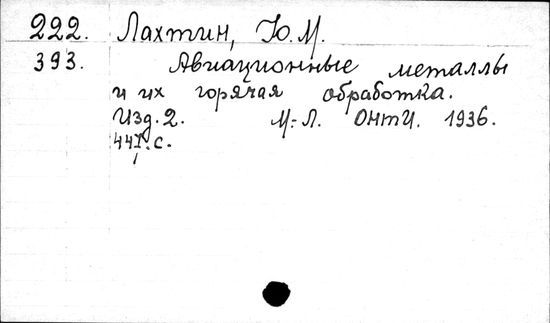 222. Лахтин, Ю.М.
393. Авиационные металлы
и их горячая обработка.
Изд. 2. М.-Л. ОНТИ. 1936.
441.с.